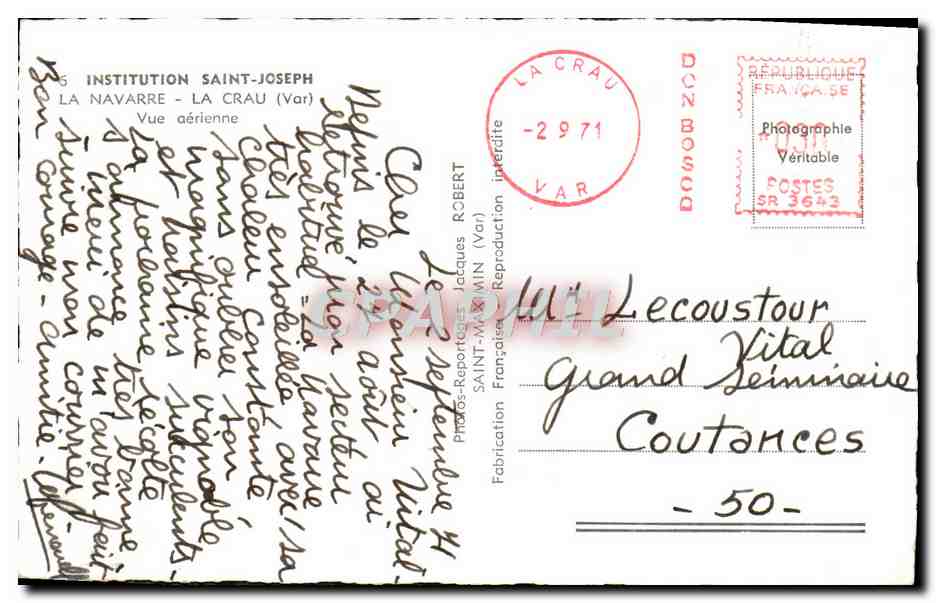 6 INSTITUTION SAINT-JOSEPH
LA NAVARRE - LA CRAU (Var)
Vue aérienne
Le 1er septembre 71
Cher Monsieur Vital -
Depuis le 2 août ai
retrouvé mon secteur
habituel = La Navarre
très ensoleillée avec sa
chaleur constante
sans oublier son
magnifique vignoble
et raisins succulents -
la prochaine récolte
s'annonce très bonne
Merci de m'avoir fait
suivre mon courrier
Bon courage - amitié.
Photos-Reportages Jacques ROBERT
SAINT-MAXIMIN (Var)
Fabrication Française Reproduction interdite
CPAPHIL
LA CRAU
-2 9 71
VAR
DON BOSCO
RÉPUBLIQUE
FRANÇAISE
Photographie
030
Véritable
POSTES
SR 3643
Mr Lecoustour
Vital
Grand Séminaire
Coutances
- 50 -